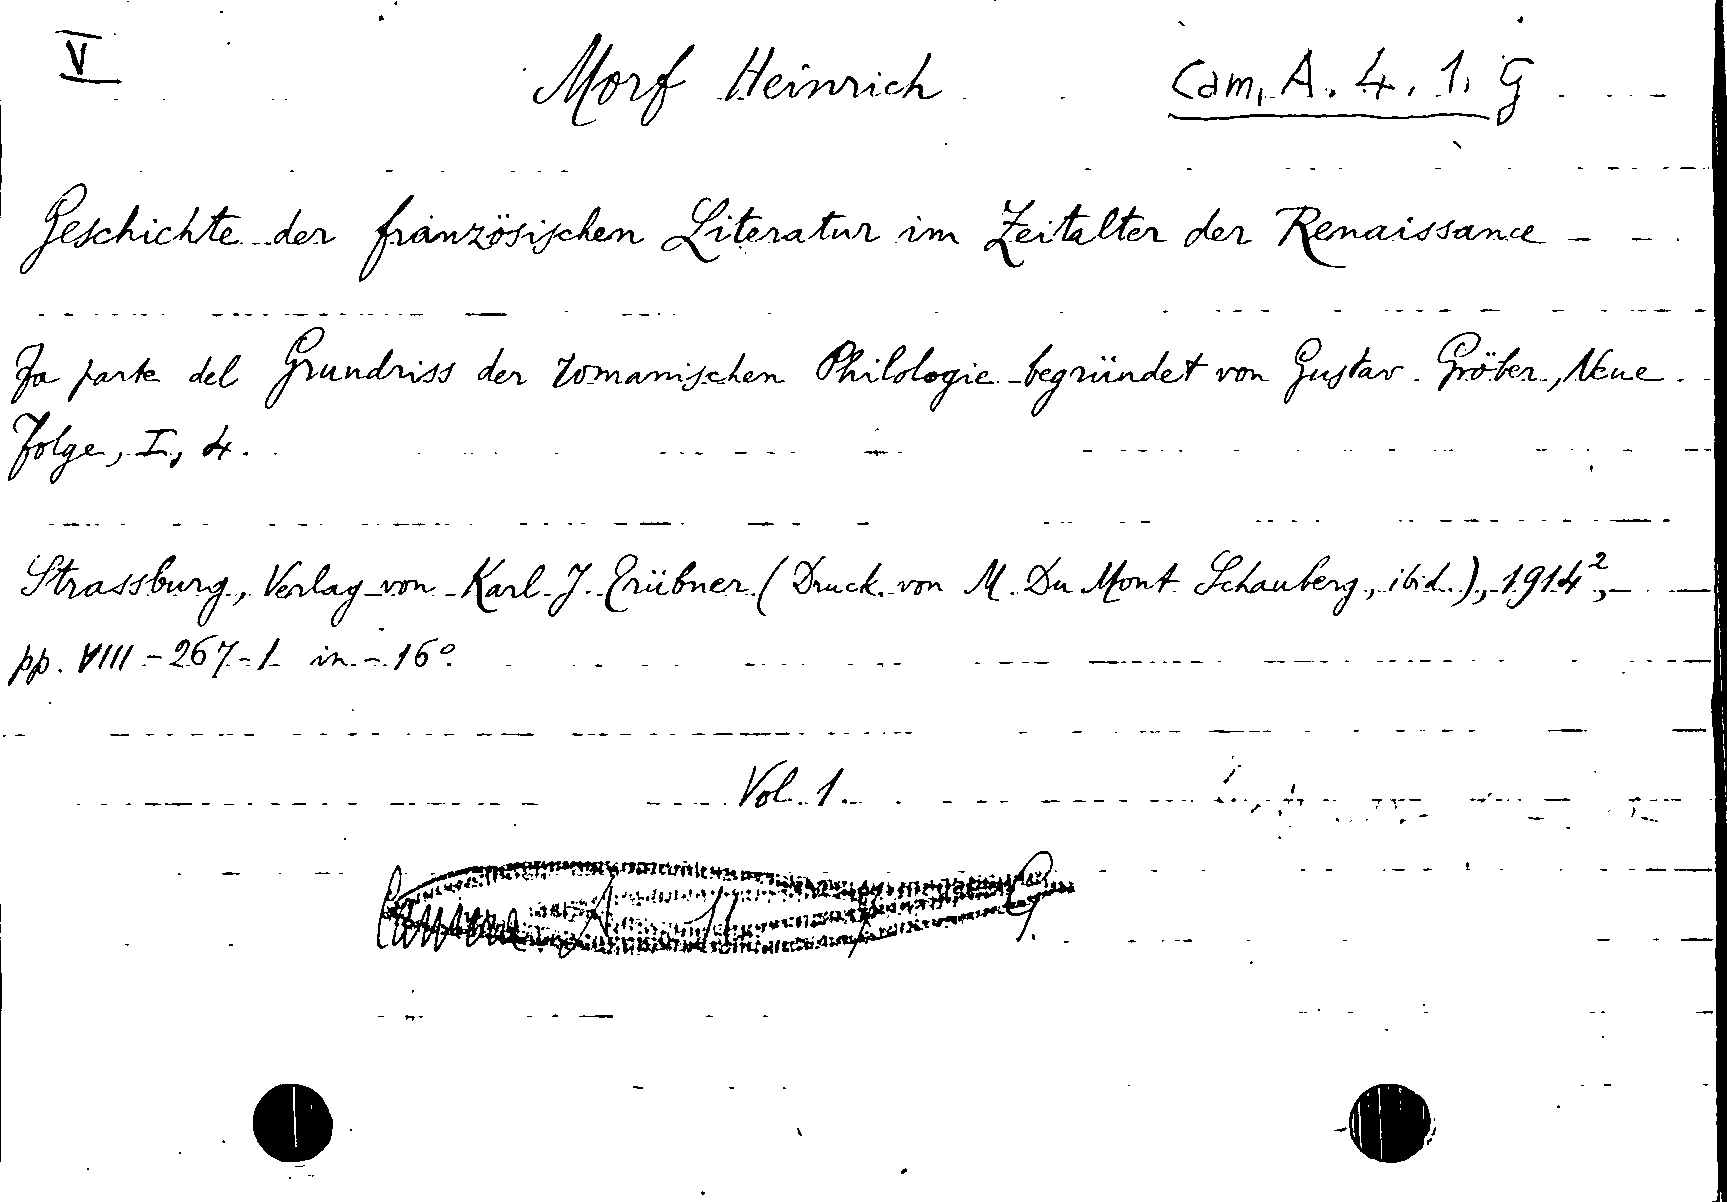 V
Morf Heinrich
Cam. A. 4. 1. G
Geschichte der französischen Literatur im Zeitalter der Renaissance
Fa parte del Grundriss der romanischen Philologie begründet von Gustav Gröber, Neue
Folge, I, 4.
Strassburg, Verlag von Karl J. Trübner (Druck von M. Du Mont Schauberg, ibid.), 1914²,
pp. VIII-267-1 in-16°.
Vol. 1.